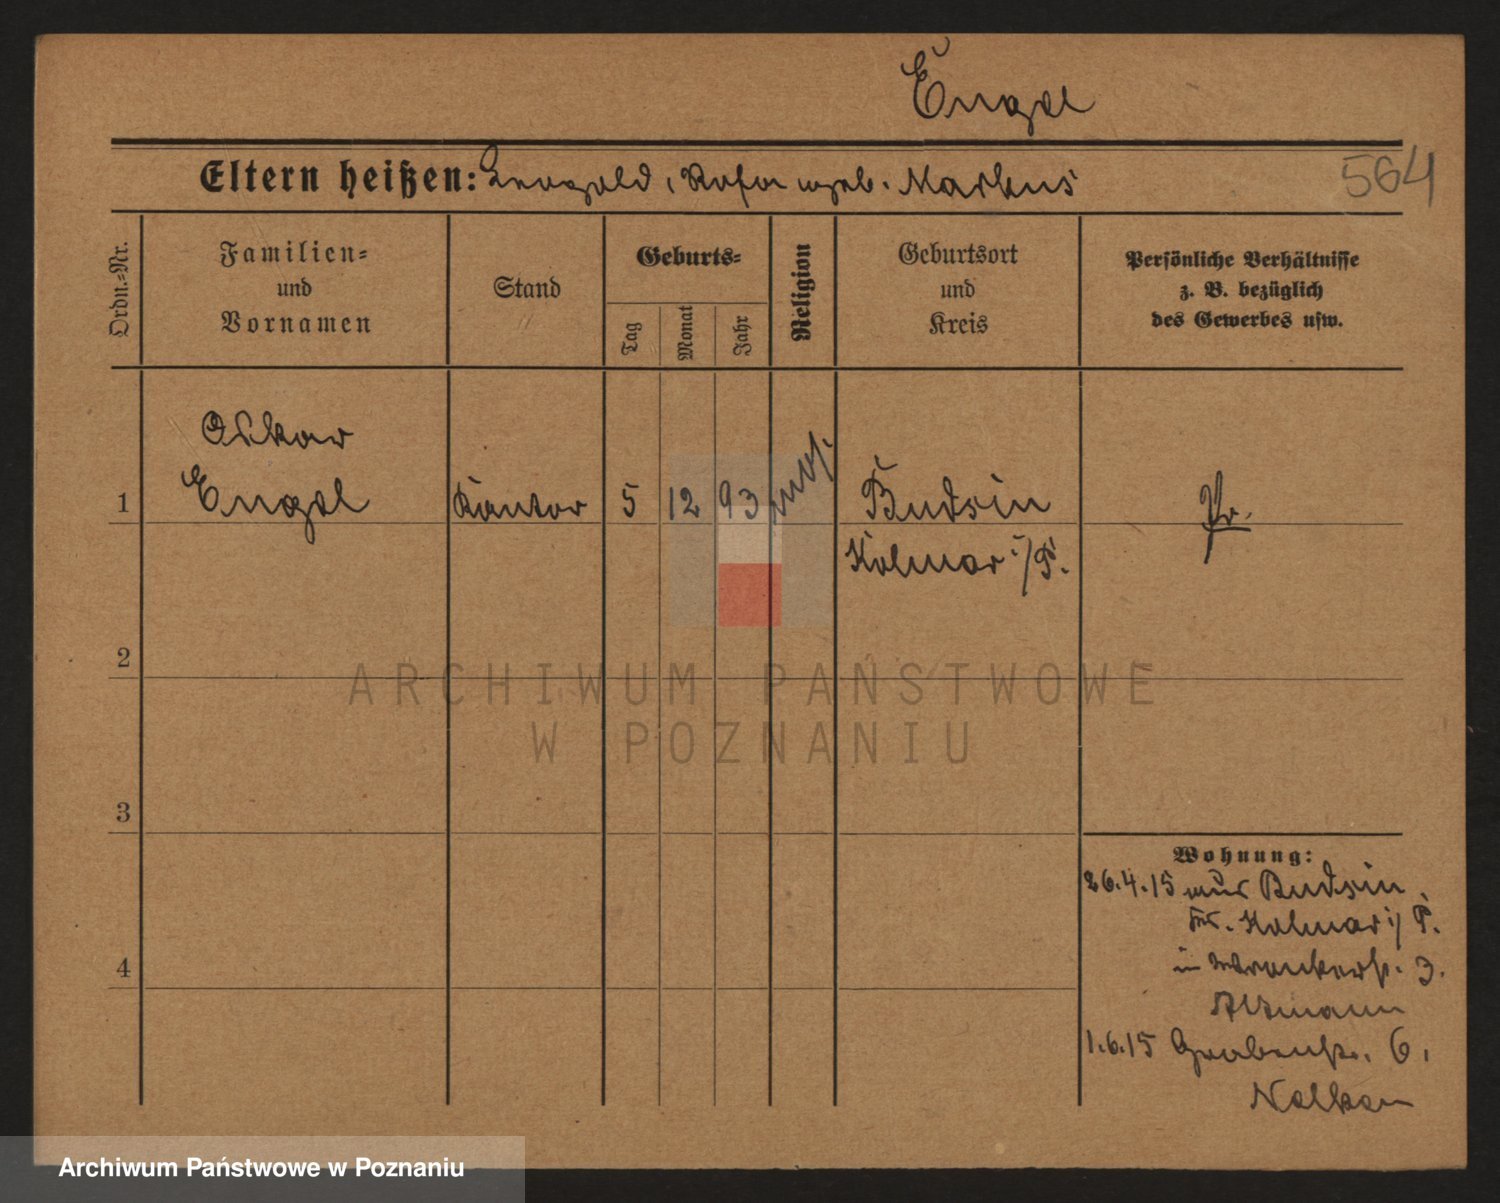 Engel
Eltern heißen: Leopold, Rosa geb. Markus
564
Ordn.=Nr.
Familien=
und
Vornamen
Stand
Geburts=
Tag
Monat
Jahr
Religion
Geburtsort
und
Kreis
Persönliche Verhältnisse
z. B. bezüglich
des Gewerbes usw.
Oskar
1 Engel Kantor 5 12 93 mos. Budsin Pr.
Kolmar i/P.
2
3
4
Wohnung:
26.4.15 aus Budsin
Krs. Kolmar i/P.
in Wronkerstr. 3.
Altmann
1.6.15 Grabenstr. 6.
ARCHIWUM PAŃSTWOWE
W POZNANIU
Archiwum Państwowe w Poznaniu